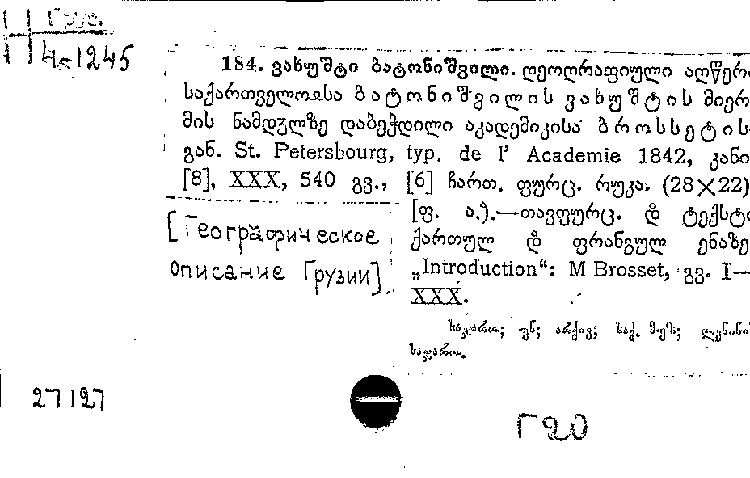 Груз.
4-1245
184. ვახუშტი ბატონიშვილი. ღეოღრაფიული აღწერ
საქართველოჲსა ბატონიშვილის ვახუშტის მიერ
მის ნამდჳლზე დაბეჭდილი აკადემიკისა ბროსსეტის
გან. St. Petersbourg, typ. de l' Academie 1842, კანი
[8], XXX, 540 გვ., [6] ჩართ. ფურც. რუკა. (28×22)
[ფ. ა.).—თავფურც. და ტექსტი
ქართულ და ფრანგულ ენაზე
„Introduction“: M Brosset, გვ. I—
XXX.
[Географическое
описание Грузии]
არქივ; საქ. მუზ;
27127
Г20